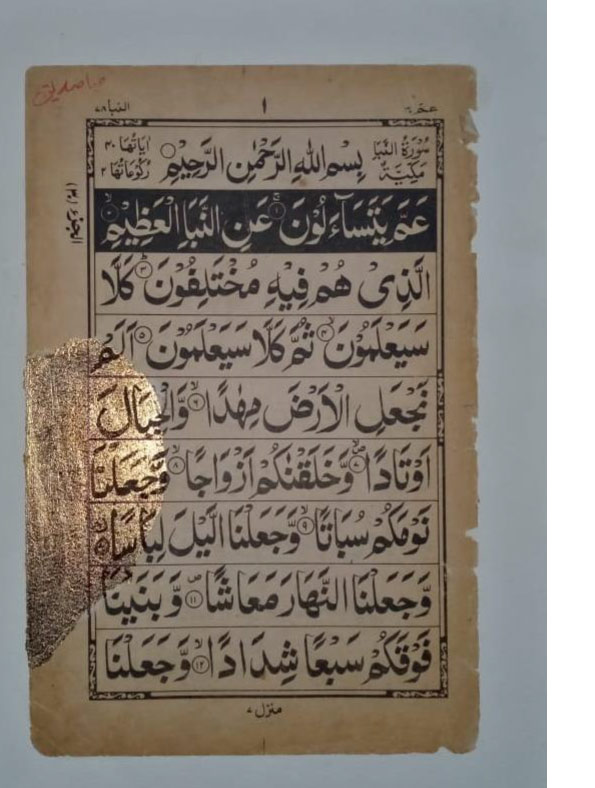 عم ٣٠ ١ النبا ٧٨
سُوْرَةُ النَّبَاِ مَكِّيَّةٌ
بِسْمِ اللّٰهِ الرَّحْمٰنِ الرَّحِیْمِ
اٰیَاتُهَا ٤٠ رُکُوْعَاتُهَا ٢
عَمَّ یَتَسَآءَلُوْنَ ۱ عَنِ النَّبَاِ الْعَظِیْمِ ۲
الَّذِیْ هُمْ فِیْهِ مُخْتَلِفُوْنَ ۳ کَلَّا
سَیَعْلَمُوْنَ ۴ ثُمَّ کَلَّا سَیَعْلَمُوْنَ ۵ اَلَمْ
نَجْعَلِ الْاَرْضَ مِهٰدًا ۶ وَّالْجِبَالَ
اَوْتَادًا ۷ وَّخَلَقْنٰکُمْ اَزْوَاجًا ۸ وَّجَعَلْنَا
نَوْمَکُمْ سُبَاتًا ۹ وَّجَعَلْنَا الَّیْلَ لِبَاسًا ۱۰
وَّجَعَلْنَا النَّهَارَ مَعَاشًا ۱۱ وَّ بَنَیْنَا
فَوْقَکُمْ سَبْعًا شِدَادًا ۱۲ وَّجَعَلْنَا
منزل ۷